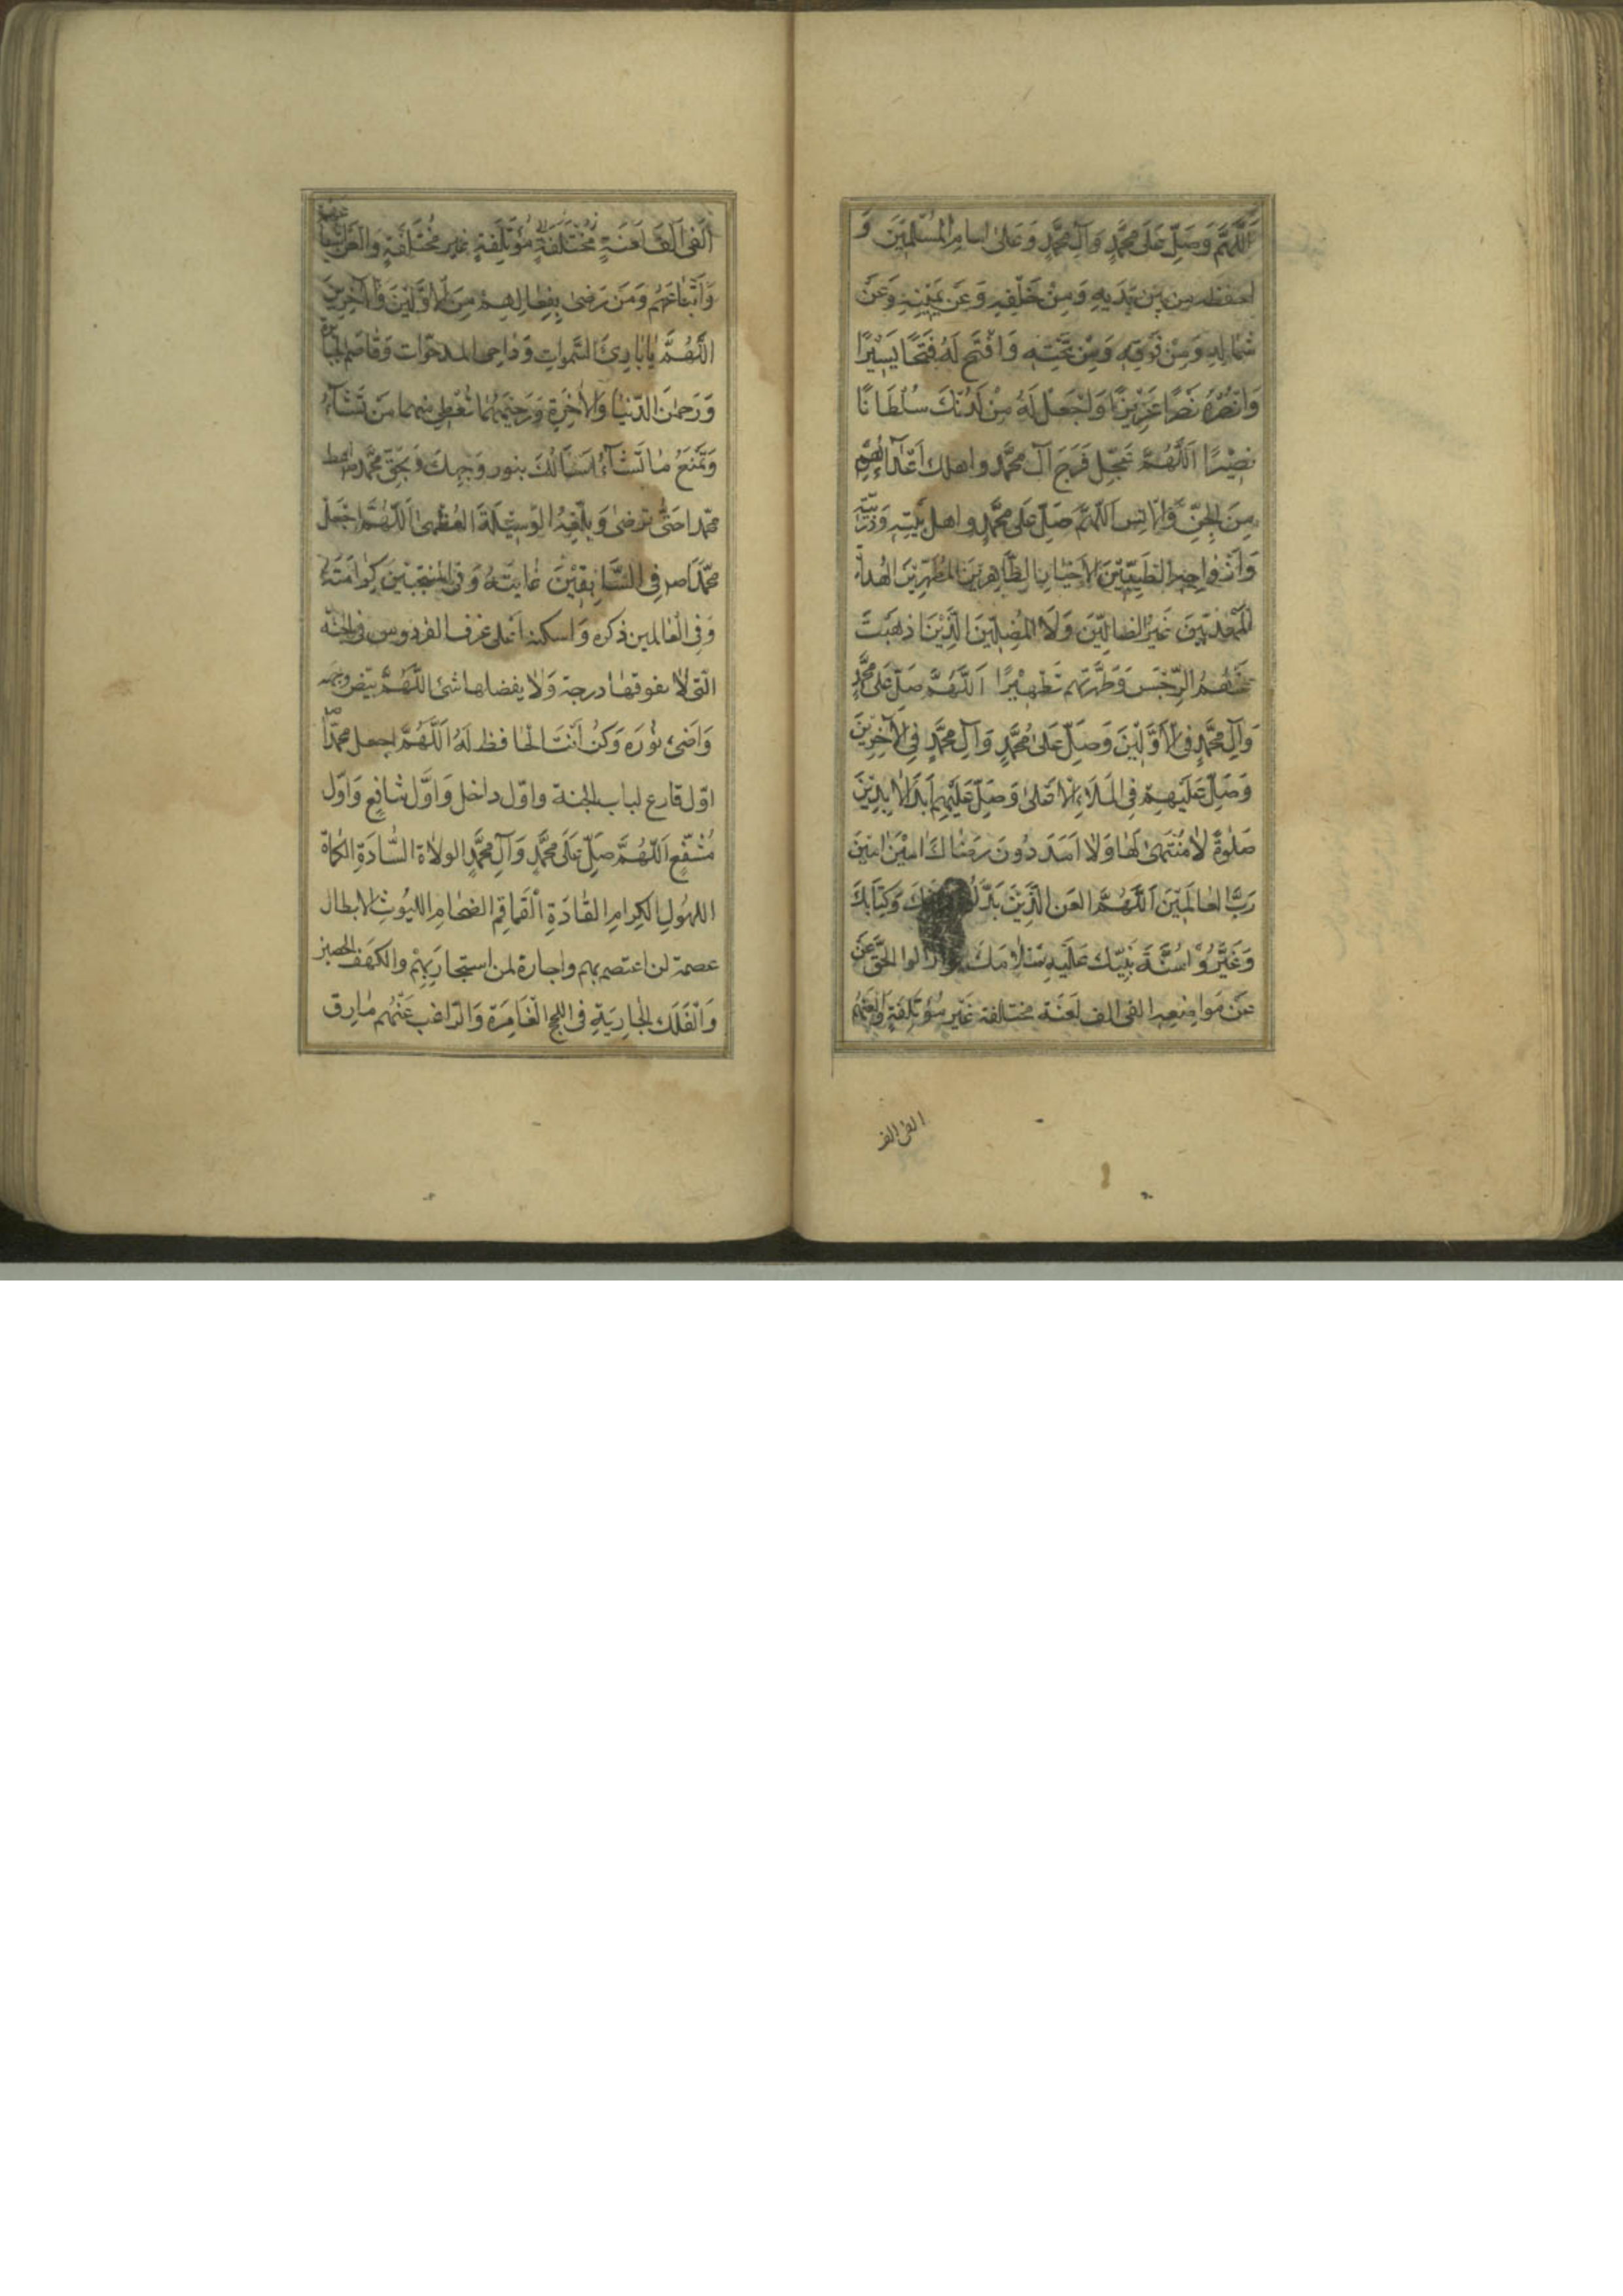 اَللّٰهُمَّ وَصَلِّ عَلٰى مُحَمَّدٍ وَآلِ مُحَمَّدٍ وَعَلٰى اِمامِ الْمُسْلِمِينَ وَ
احفظه مِن بَيْنِ يَدَيهِ وَمِنْ خَلْفِهِ وَعَن يَمِينِهِ وَعَنْ
شمالِهِ وَمِنْ فَوقِهِ وَمِنْ تَحْتِهِ وَافْتَحْ لَهُ فَتْحًا يَسِيْرًا
وَانْصُرْهُ نَصْرًا عَزِيْزًا وَاجْعَلْ لَهُ مِنْ لَدُنْكَ سُلْطَانًا
نصِيْرًا اَللّٰهُمَّ عَجِّل فَرَجَ آل مُحَمَّد واهلك اَعْدَآءَهُمْ
مِنَ الجِنِّ وَالْاِنسِ اَللّٰهُمَّ صَلِّ عَلٰى مُحَمَّدٍ واهل بَيْتِهِ وَذُرِّيَّتِهِ
وَازْواجِهِ الطَيِّبِيْنَ الْاَخْيارِ الطَّاهِرِيْنَ المُطَهَّرِيْنَ الهُداةِ
المَهْدِيِّينَ غَيْرَ الضالِّيْنَ وَلَا المُضِلِّيْنَ الَّذِيْنَ اذهَبْتَ
عَنْهُمُ الرِّجْسَ وَطَهَّرْتَهُم تَطْهِيْرًا اَللّٰهُمَّ صَلِّ عَلٰى مُحَمَّدٍ
وَآلِ مُحَمَّدٍ فِى الْاَوَّلِيْنَ وَصَلِّ عَلٰى مُحَمَّدٍ وَآلِ مُحَمَّدٍ فِى الْآخِرِيْنَ
وَصَلِّ عَلَيْهِمْ فِى المَلَاءِ الْاَعْلٰى وَصَلِّ عَلَيْهِمْ اَبَدَ الْآبِدِيْنَ
صَلٰوةً لَا مُنْتَهٰى لَهَا وَلَا اَمَدَ دُونَ رِضَاكَ امِيْنَ امِيْنَ
رَبَّ العٰالَمِيْنَ اَللّٰهُمَّ العَنِ الَّذِيْنَ بَدَّلُوا وَكِتَابَكَ
وَغَيَّرُوْا سُنَّةَ نَبِيِّكَ عَلَيْهِ سَلامُكَ وَازَالوا الحَقَّ عَنْ
عَنْ مَوَاضِعِهِ الفى الف لَعْنَة مختلفة غَيْرِ مُؤْتَلِفَةٍ وَالْعَنْهُمْ
الفى الف
اَلْفَى اَلْفَ لَعْنَةٍ مُخْتَلِفَةٍ مُؤْتَلِفَةٍ غير مُخْتَلِفَةٍ وَالعَن
وَاَتْبَاعَهُم وَمَن رَضِىَ بِفِعَالِهِمْ مِنَ الْاَوَّلِيْنَ وَالْآخِرِيْنَ
اَللّٰهُمَّ يَا بَارِئَ السَّمٰوَاتِ وَدَاحِىَ المدحوّات وَقَاصِمَ الجَبابِرَة
وَرَحمٰنَ الدُّنْيَا وَالْاٰخِرَةِ وَرَحِيْمَهُمَا تُعْطِى مِنْهما مَنْ تَشَآءُ
وَتَمْنَعُ مَا تَشَآءُ اَسْاَلُكَ بِنور وَجهِكَ وَبحَقِّ مُحَمَّد اعط
محمّدا حَتّٰى يَرضٰى وَبَلِّغْهُ الوَسِيْلَةَ العُظْمٰى اَللّٰهُمَّ اجْعَلْ
مُحَمَّدًا ص فِى السَّابِقِيْنَ غَايَتَهُ وَفِى المُنْتَجَبِيْنَ كَرَامَتَهُ
وَفِى الْعَالمين ذكره وَاسكنه اَعْلى غرف الفردوس فى الجنّة
الّتى لا يفوقها درجة وَلا يفضلها شئ اللّٰهُمَّ بيّض وجهه
وَاَضِئْ نُوْرَه وَكُنْ اَنْتَ الْحَافظ لَهُ اَللّٰهُمَّ اجعل محمّدًا ص
اوّل قارع لباب الجنة واوّل داخل وَاَوَّل شافِعٍ وَاوّل
مُشَفَّعٍ اَللّٰهُمَّ صَلِّ عَلٰى مُحَمَّدٍ وَآلِ مُحَمَّدٍ الولاة السَّادَةِ الكُماة
الكهُولِ الكِرامِ القَادَةِ الْقَماقِمِ الضخامِ اللُيُوثِ الابطال
عصمة لمن اعتصم بهم واجارة لمن استجار بِهِمْ والكَهفِ الحصين
وَالْفُلْكِ الجَارِيَةِ فى اللجج الْغَامِرَة وَالرَّاغب عَنْهُم مَارِق